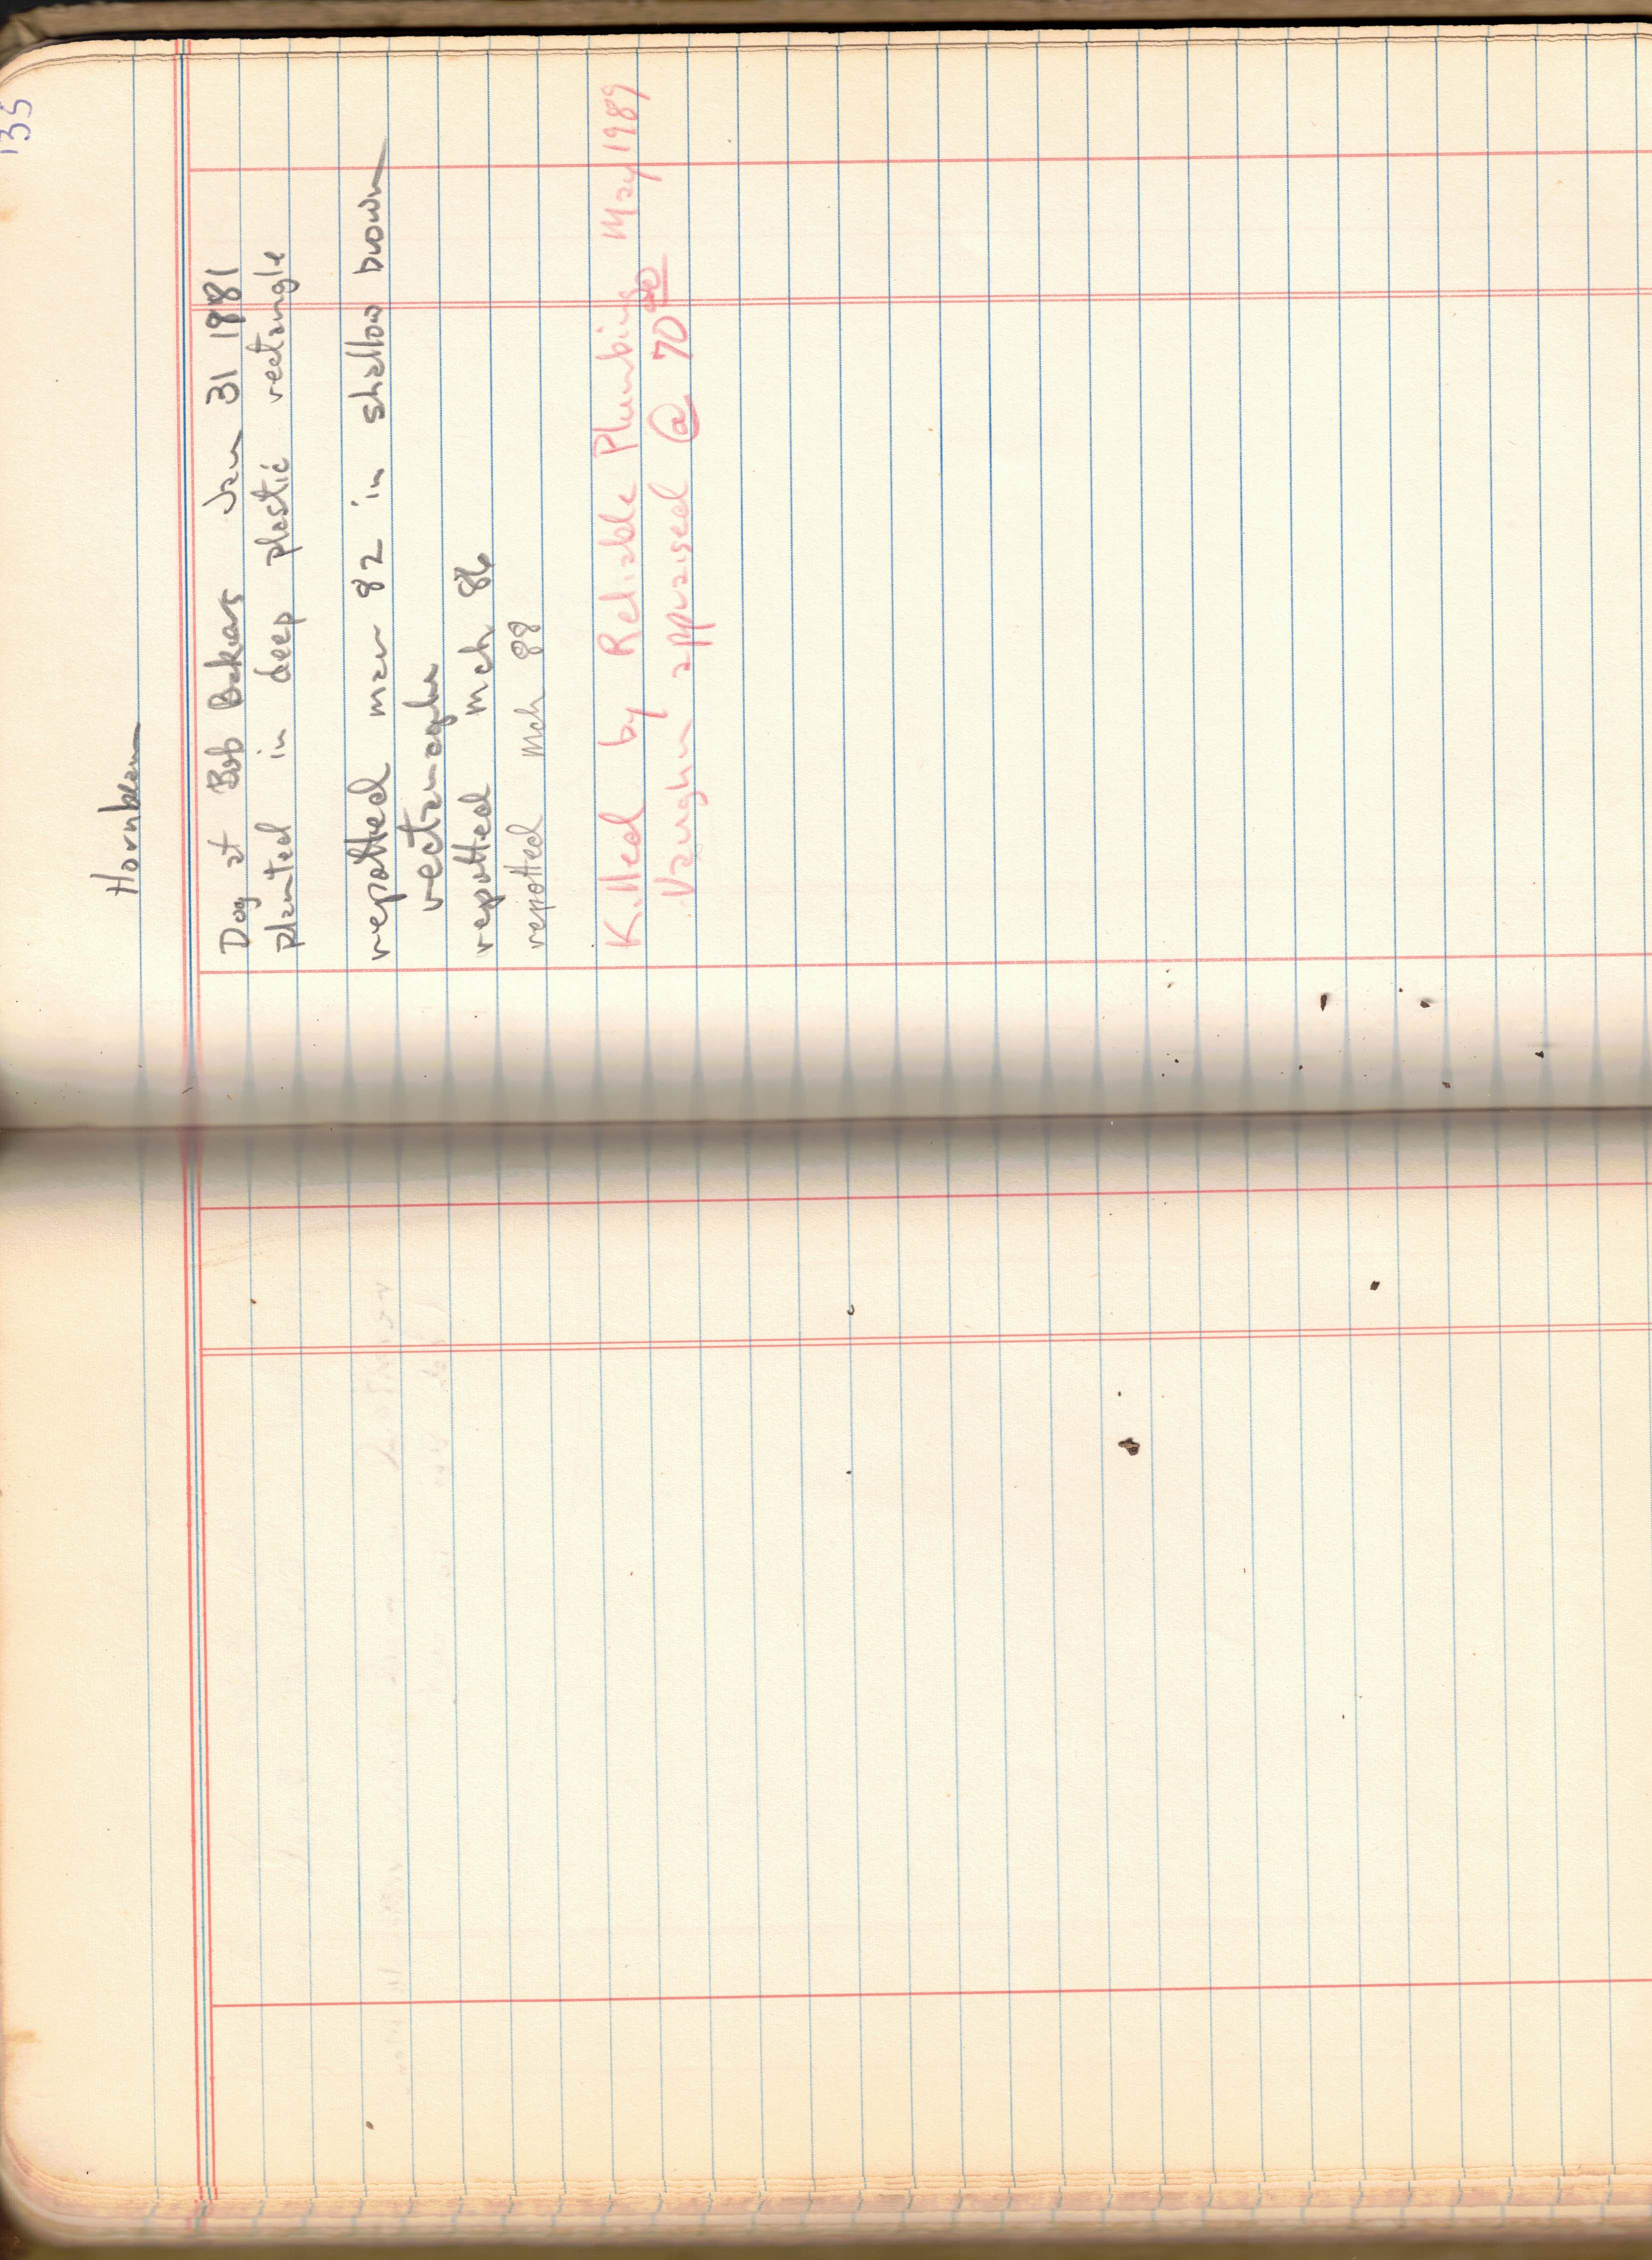 135
Hornbeam
Dog at Bob Bakers Jan 31 1981
planted in deep plastic rectangle
repotted mar 82 in shallow brown
rectanagle
repotted Mch 86
repotted Mch 88
Killed by Reliable Plumbing May 1989
Vaughn appraised @ 70 00